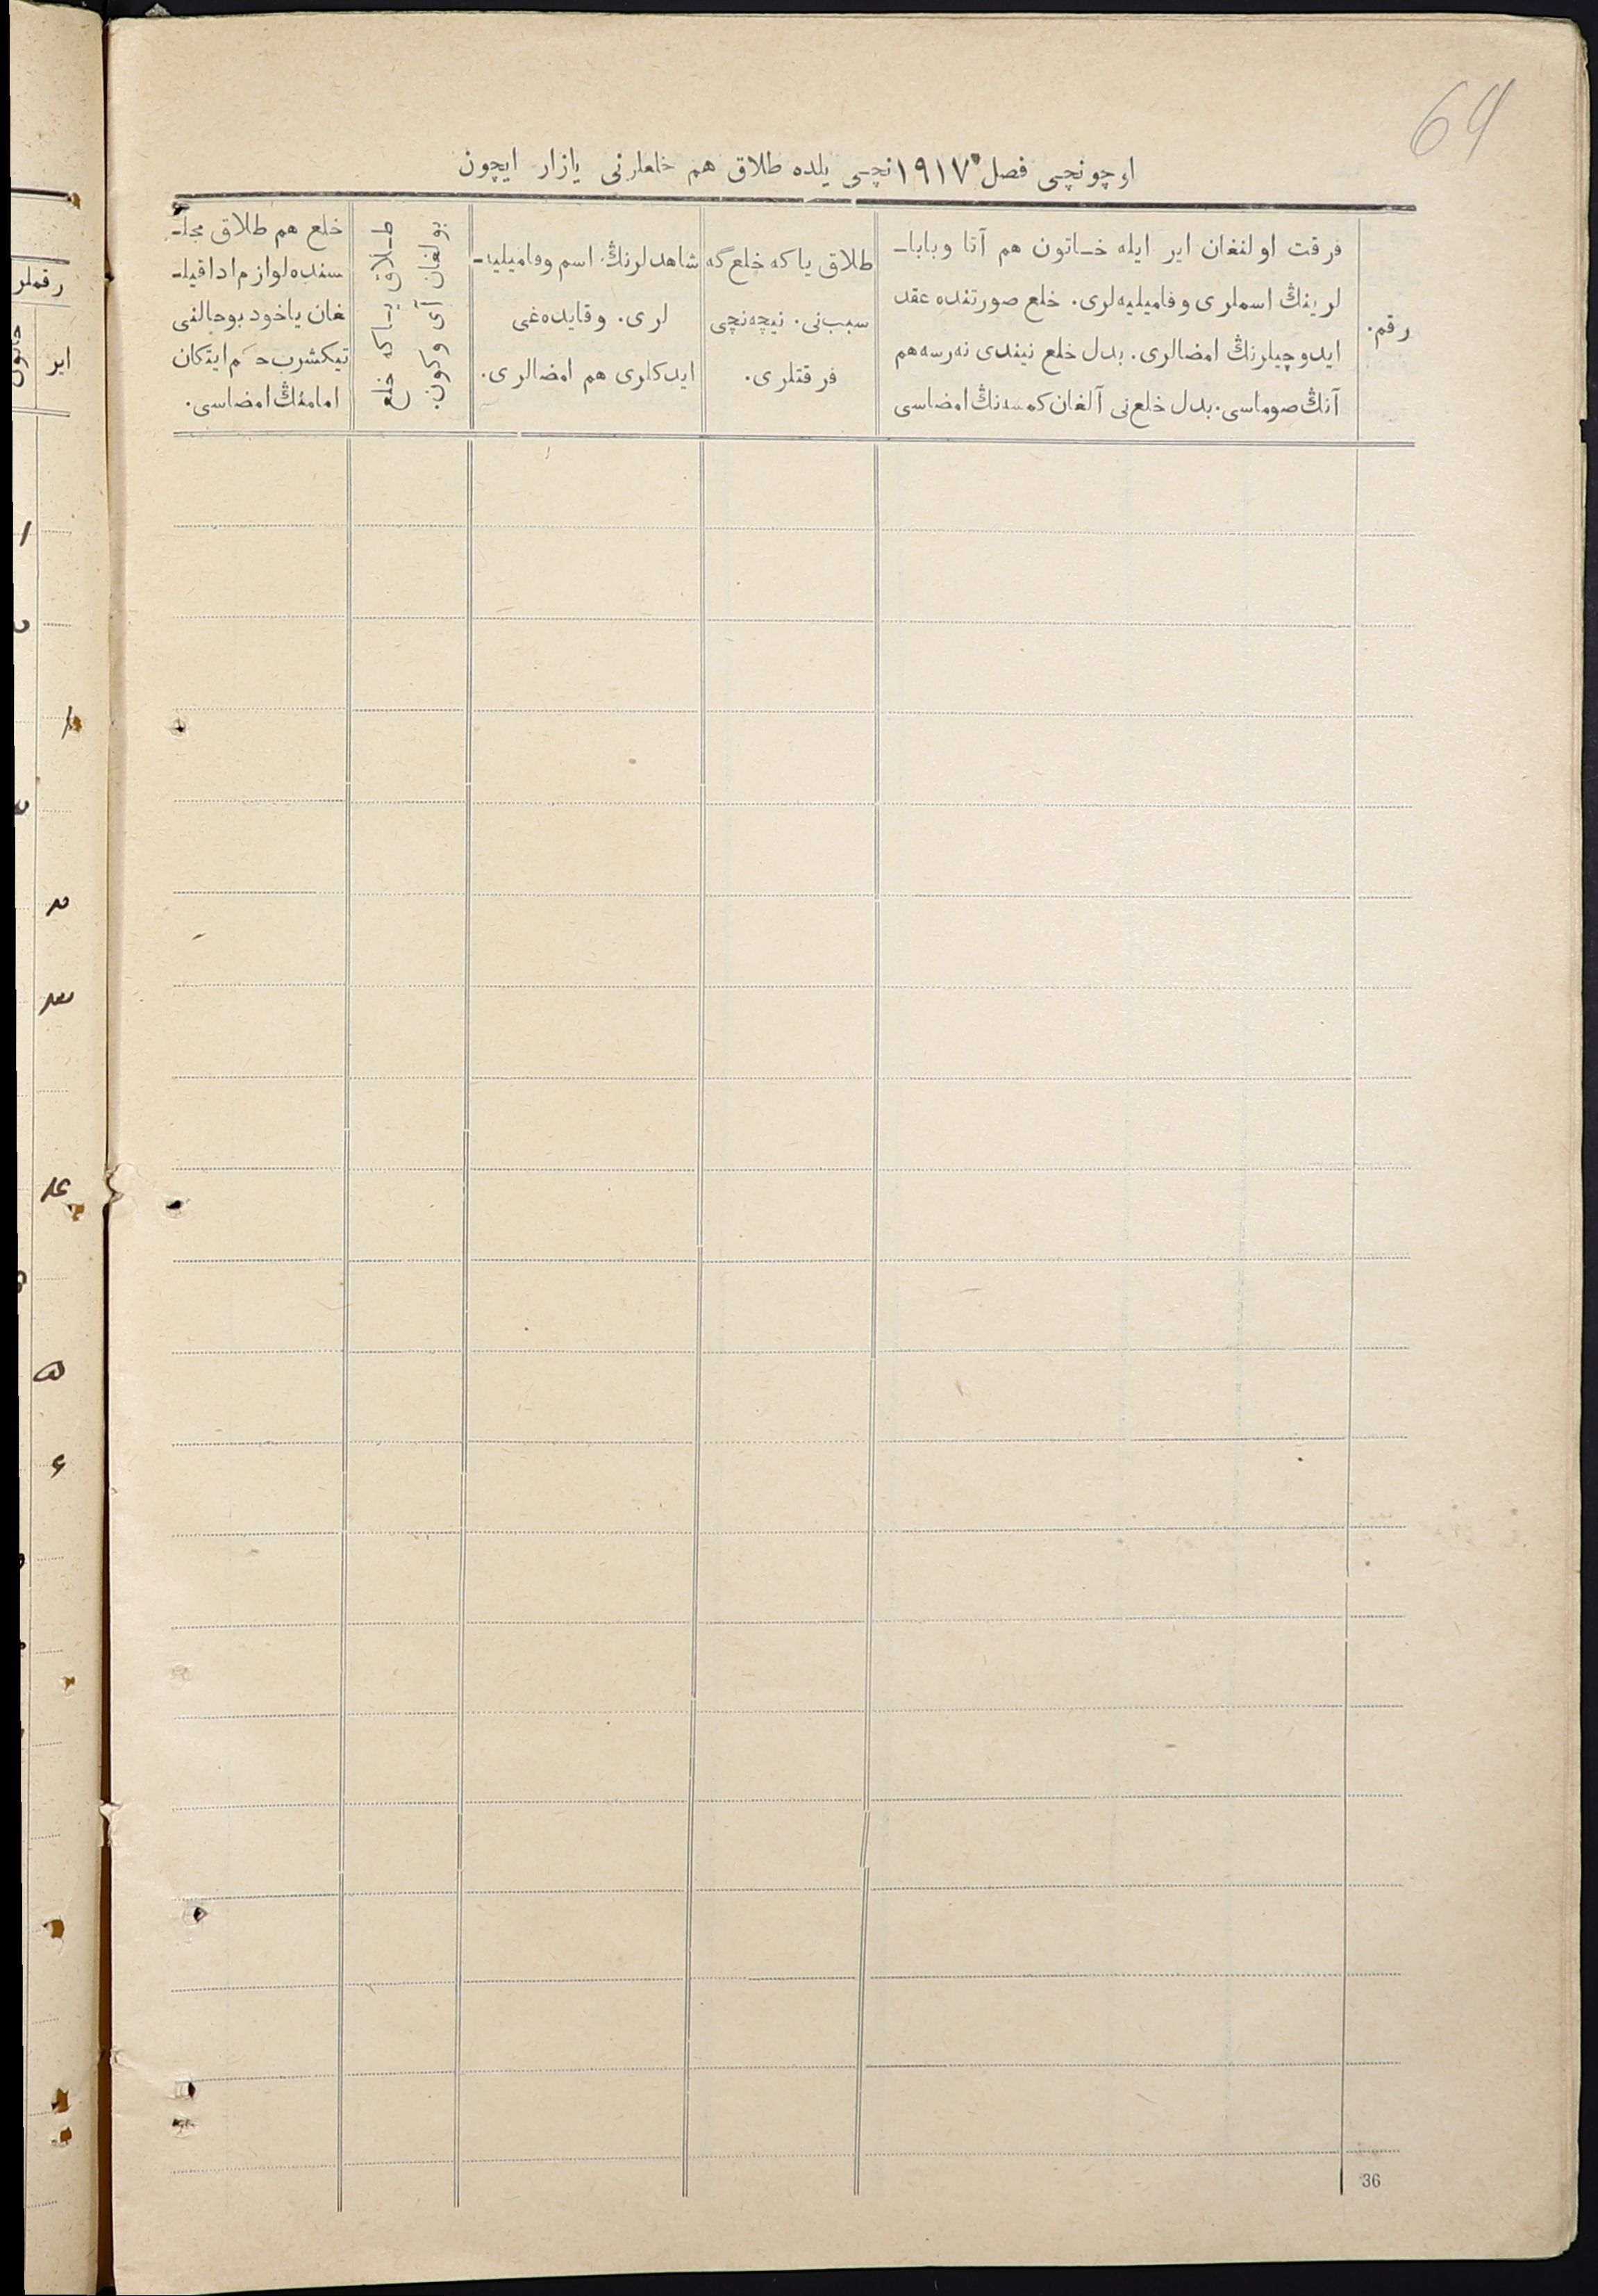 64
اوچونچی فصل ۱۹۱۷ نچی یلده طلاق هم خلعلرنی یازار ایچون
رقم.
فرقت اولنغان ایر ایله خاتون هم آتا وبابا-
لرینڭ اسملری وفامیلیه‌لری. خلع صورتنده عقد
ایدوچیلرنڭ امضالری. بدل خلع نیندی نه‌رسه هم
آنڭ صوماسی. بدل خلع‌نی آلغان کمسه‌نڭ امضاسی
طلاق یاکه خلع‌گه
سبب‌نی. نیچه‌نچی
فرقتلری.
شاهدلرنڭ اسم وفامیلیه-
لری. وقایده‌غی
ایدکلری هم امضالری.
طلاق یاکه خلع
بولغان آی وکون.
خلع هم طلاق مجلـ
سنده لوازم ادا قیلـ
غان یاخود بوحالنی
تیکشرب حکم ایتکان
امامنڭ امضاسی.
رقملر
ایر
خاتون
۱
۲
۳
۴
۵
۶
36